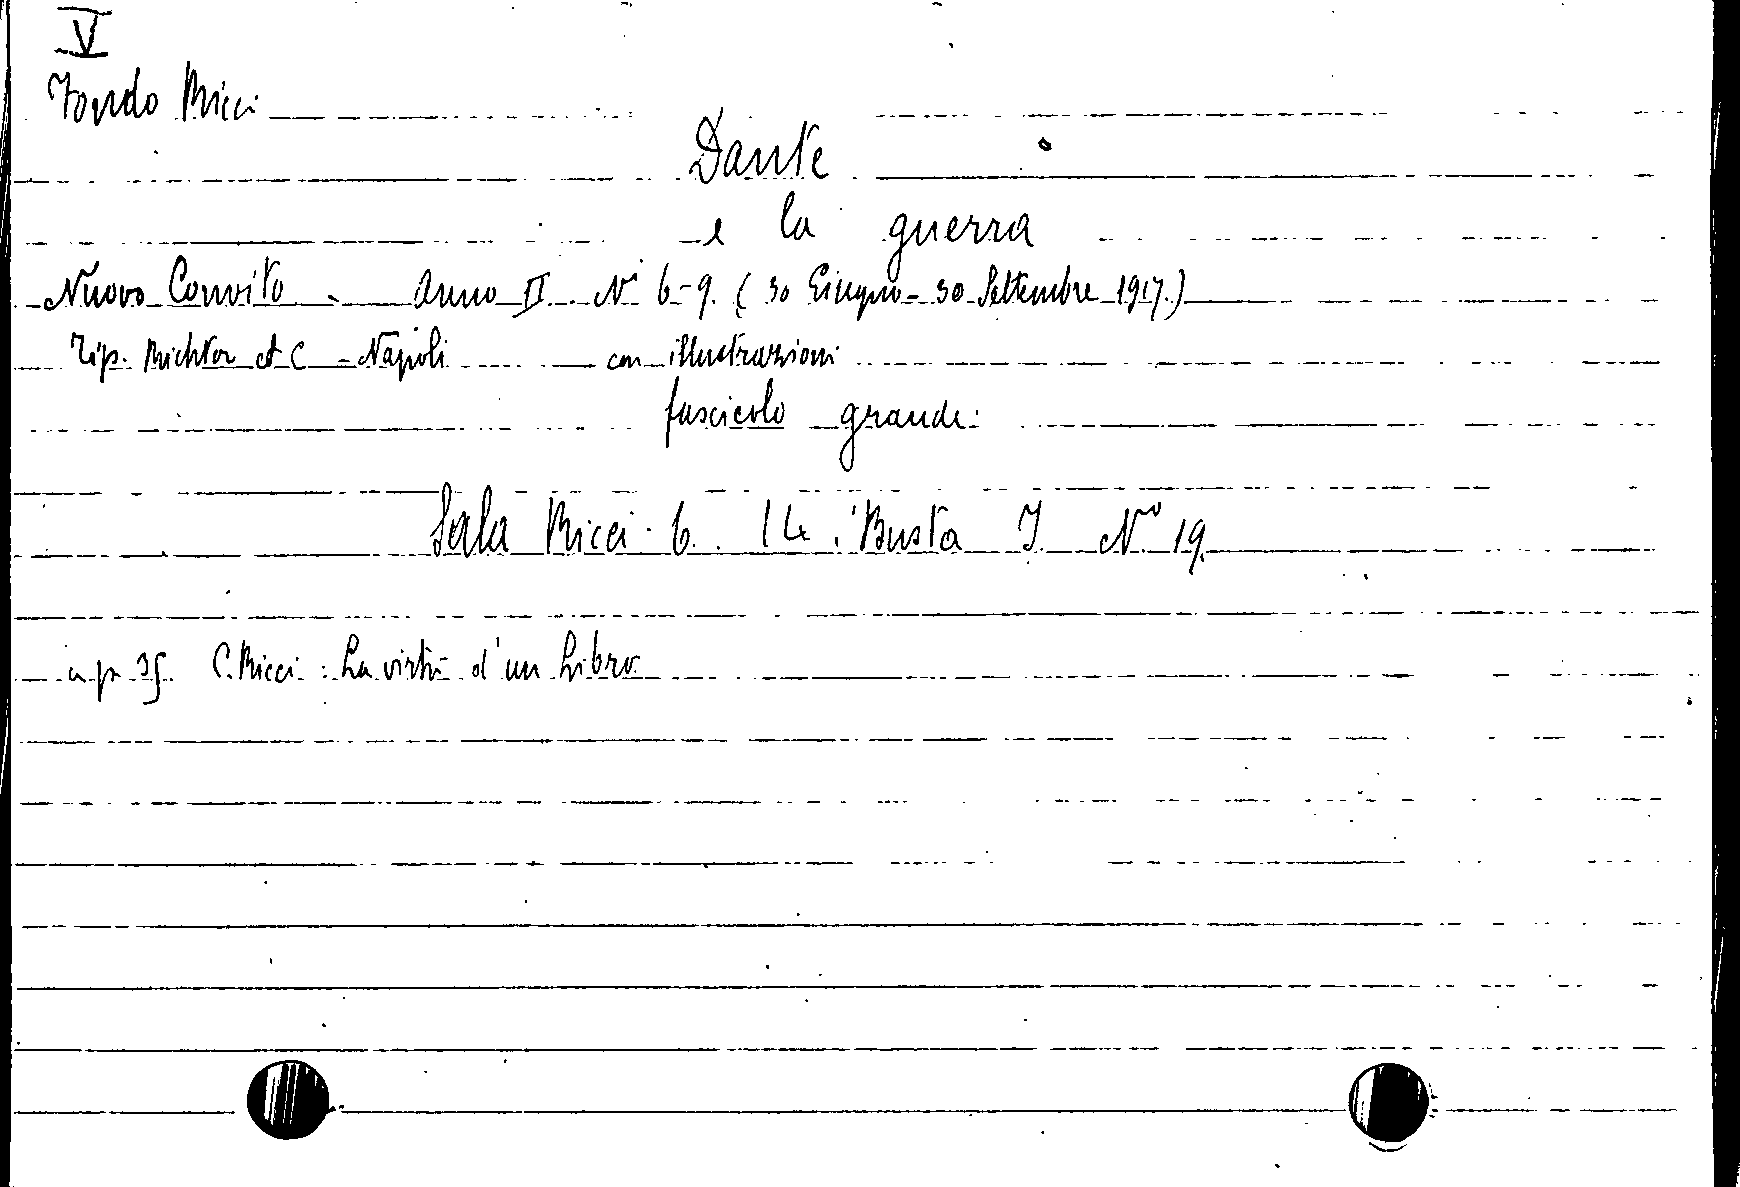 V
Fondo Ricci
Dante
e la guerra
Nuovo Convito - Anno II - N° 6-9. (30 Giugno - 30 Settembre 1917.)
Tip. Richter et C - Napoli con illustrazioni
fascicolo grande:
Sala Ricci. 6. 14. Busta I. N° 19.
a p. 35. C. Ricci: La virtù d'un Libro.